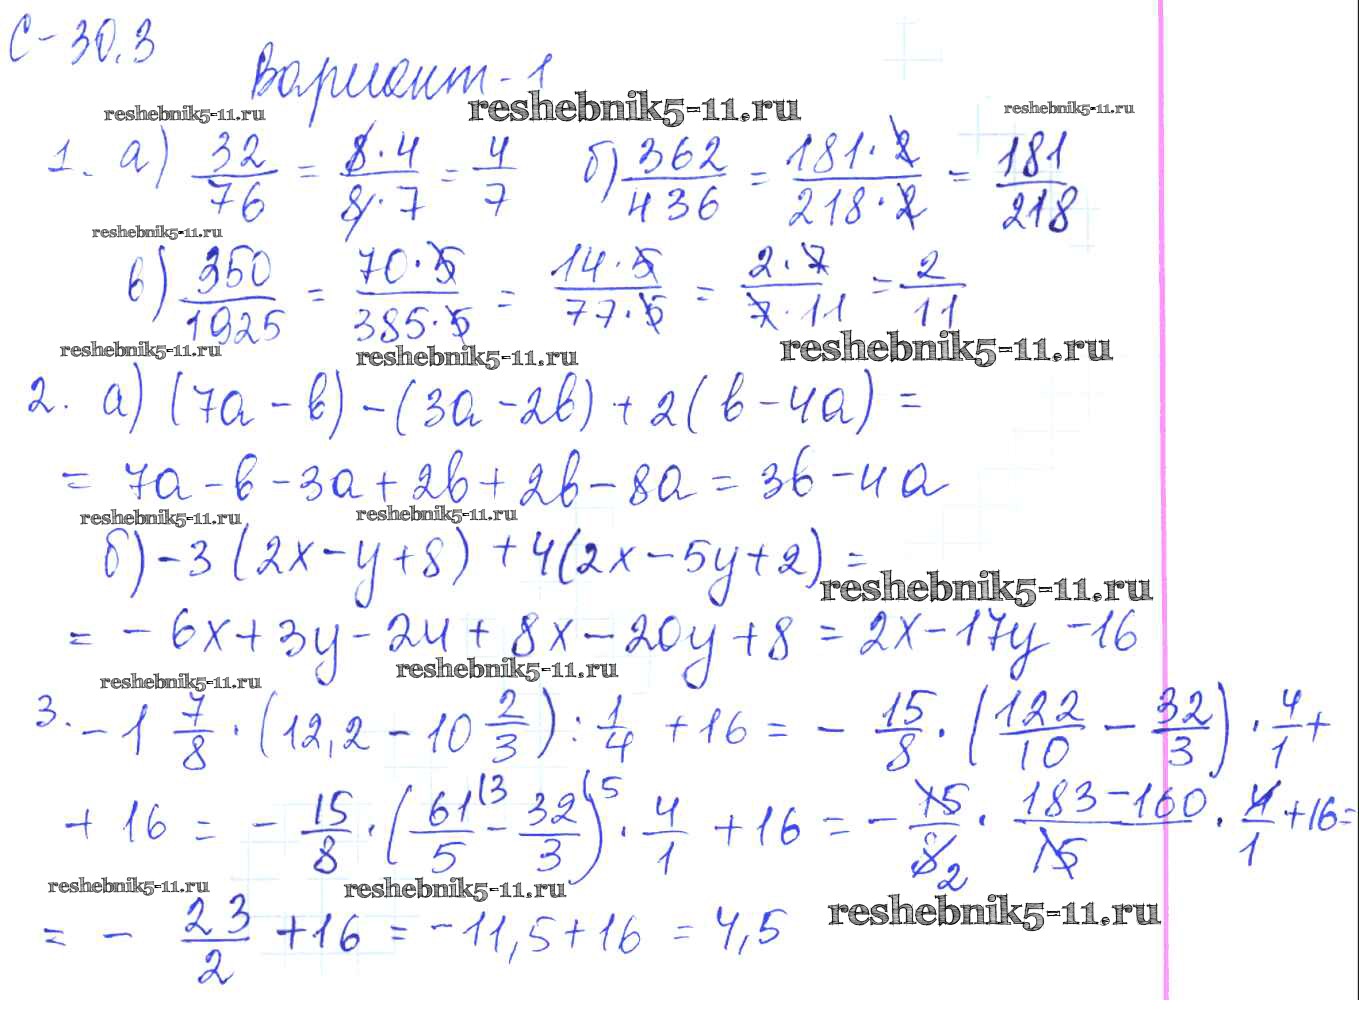 С-30.3
Вариант-1
reshebnik5-11.ru reshebnik5-11.ru reshebnik5-11.ru
1. а) 32/76 = 8·4/8·7 = 4/7 б) 362/436 = 181·2/218·2 = 181/218
reshebnik5-11.ru
в) 350/1925 = 70·5/385·5 = 14·5/77·5 = 2·7/7·11 = 2/11
reshebnik5-11.ru reshebnik5-11.ru reshebnik5-11.ru
2. а) (7а - в) - (3а - 2в) + 2(в - 4а) =
= 7а - в - 3а + 2в + 2в - 8а = 3в - 4а
reshebnik5-11.ru reshebnik5-11.ru
б) -3(2x - y + 8) + 4(2x - 5y + 2) =
reshebnik5-11.ru
= -6x + 3y - 24 + 8x - 20y + 8 = 2x - 17y - 16
reshebnik5-11.ru reshebnik5-11.ru
3. -1 7/8 · (12,2 - 10 2/3) : 1/4 + 16 = - 15/8 · (122/10 - 32/3) · 4/1 +
+ 16 = - 15/8 · (61/5 (3 - 32/3 (5) · 4/1 + 16 = - 15/8 2 · 183-160/15 · 4/1 + 16 =
reshebnik5-11.ru reshebnik5-11.ru reshebnik5-11.ru
= - 23/2 + 16 = -11,5 + 16 = 4,5